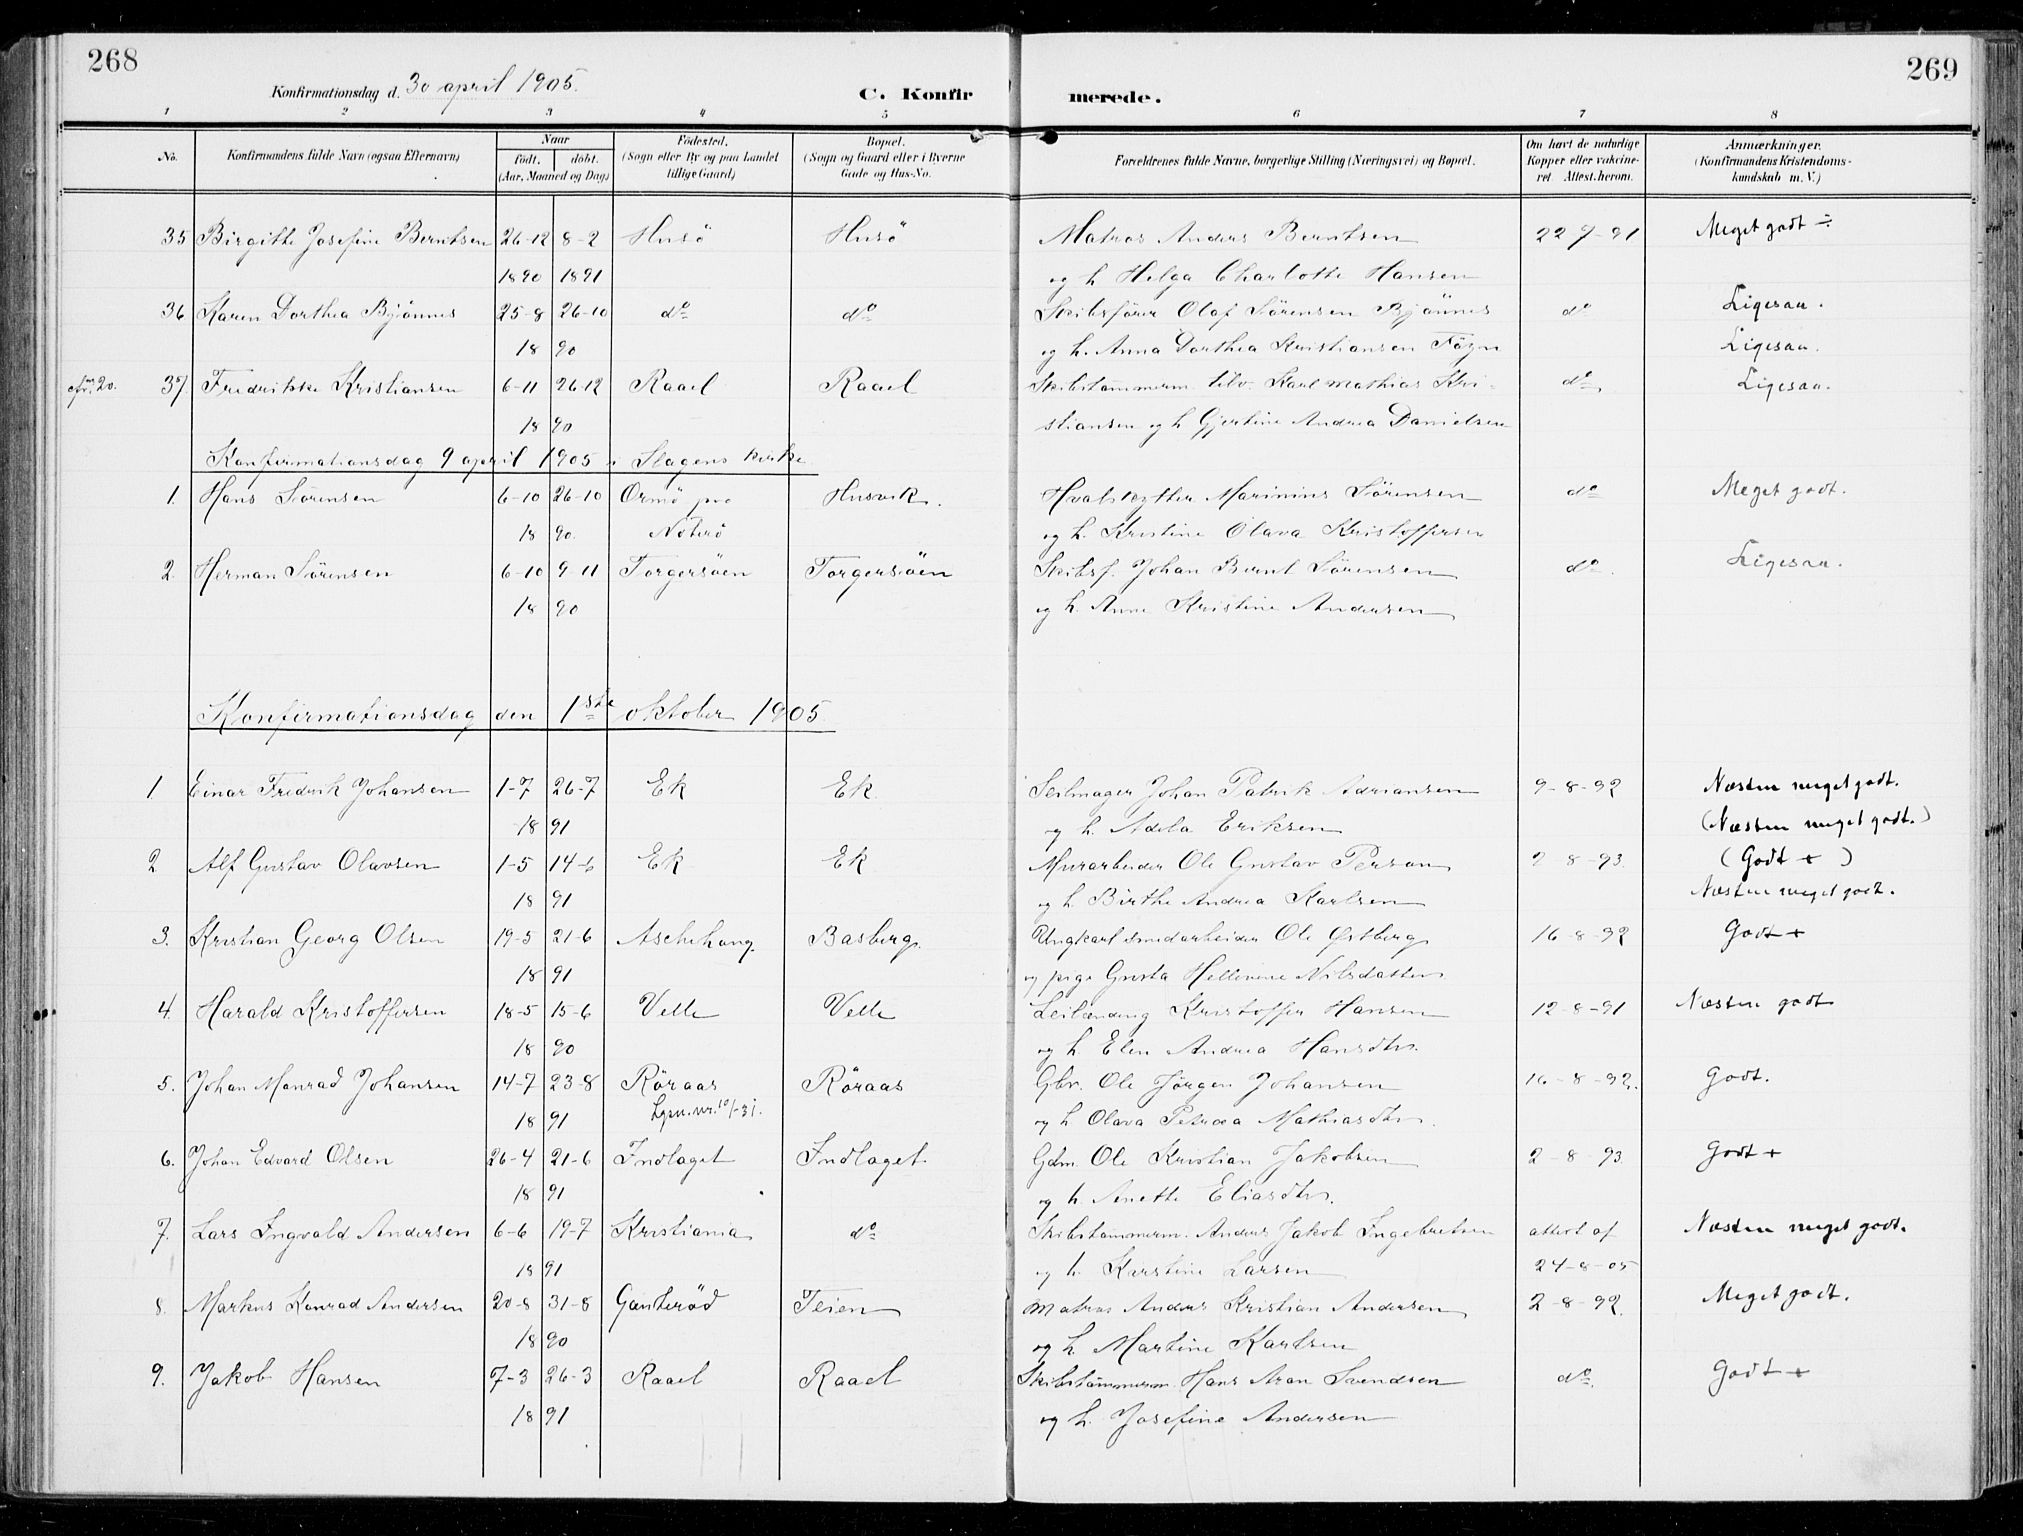 268
269
Konfirmationsdag d. 30 april 1905.
C. Konfirmerede.
1 2 3 4 5 6 7 8
No. Konfirmandens fulde Navn (ogsaa Efternavn) Naar født. døbt. (Aar, Maaned og Dag) Fødested. (Sogn eller By og paa Landet tillige Gaard) Bopæl. (Sogn og Gaard eller i Byerne Gade og Hus-No. Forældrenes fulde Navne, borgerlige Stilling (Næringsvei) og Bopæl. Om havt de naturlige Kopper eller vakcineret. Attest herom. Anmærkninger. (Konfirmandens Kristendomskundskab m. V.)
35 Birgitte Josefine Berntsen 26-12 8-2 Husö Husö Matros Anders Berntsen 22-7-91 Meget godt ÷
1890 1891 og h. Helga Charlotte Hansen
36 Karen Dorthea Bjönnes 25-8 26-10 do do Skibsfører Olaf Sørensen Bjönnes do Ligesaa.
18 90 og h. Anna Dorthea Kristiansen Föyn Ligesaa.
cfr. nr 20. 37 Fredrikke Kristiansen 6-11 26-12 Raael Raael Skibstømmerm. tilv. Karl Mathias Kri- do Ligesaa.
18 90 stiansen og h. Gjertine Andrea Danielsen
Konfirmationsdag 9 april 1905 i Slagens kirke
1. Hans Sørensen 6-10 26-10 Ormö pr Husvik. Hvalskytter Marinius Sørensen do Meget godt.
18 90. Nöterö og h. Kristine Olava Kristoffersen
2. Herman Sørensen 6-10 9-11 Torgersöen Torgersöen Skibsf. Johan Bernt Sørensen do. Ligesaa.
18 90 og h. Anne Kristine Andersen
Konfirmationsdag den 1ste oktober 1905
1. Einar Fredrik Johansen 1-7 26-7 Ek Ek Seilmager Johan Patrik Adriansen 9-8-92 Næsten meget godt.
18 91 og h. Adela Eriksen (Næsten meget godt.)
2 Alf Gustav Olavsen 1-5 14-6 Ek Ek Murarbeider Ole Gustav Person 2-8-93. (Godt +)
18 91 og h. Birthe Andrea Karlsen Næsten meget godt.
3. Kristian Georg Olsen 19-5 21-6 Aschehoug. Basberg. Ungkarl smedarbeider Ole Østberg 16-8-92 Godt +
18 91 og pige Gusta Hellevine Nilsdatter
4. Harald Kristoffersen 18-5 15-6 Velle Velle Leilænding Kristoffer Hansen 12-8-91 Næsten godt
18 90 og h. Elen Andrea Hansdtr.
5. Johan Monrad Johansen 14-7 23-8 Röraas Röraas Gbr. Ole Jørgen Johansen 16-8-92. Godt.
18 91 Lysn. nr. 10/-31. og h. Olava Petrea Mathiasdtr.
6. Johan Edvard Olsen 26-4 21-6 Indlaget Indlaget Gdm. Ole Kristian Jakobsen 2-8-93. Godt +
18 91 og h. Anette Eliasdtr.
7. Lars Ingvald Andersen 6-6 19-7 Kristiania do Skibstømmerm. Anders Jakob Ingebretsen attest af Næsten meget godt.
18 91 og h. Karstine Larsen 24-8-05
8. Markus Konrad Andersen 20-8 31-8 Gauterød Teien Matros Anders Kristian Andersen 2-8-92. Meget godt.
18 90 og h. Martine Karlsen
9. Jakob Hansen 7-3 26-3 Raael Raael Skibstømmerm. Hans Aron Svendsen do. Godt +
18 91 og h. Josefine Andersen